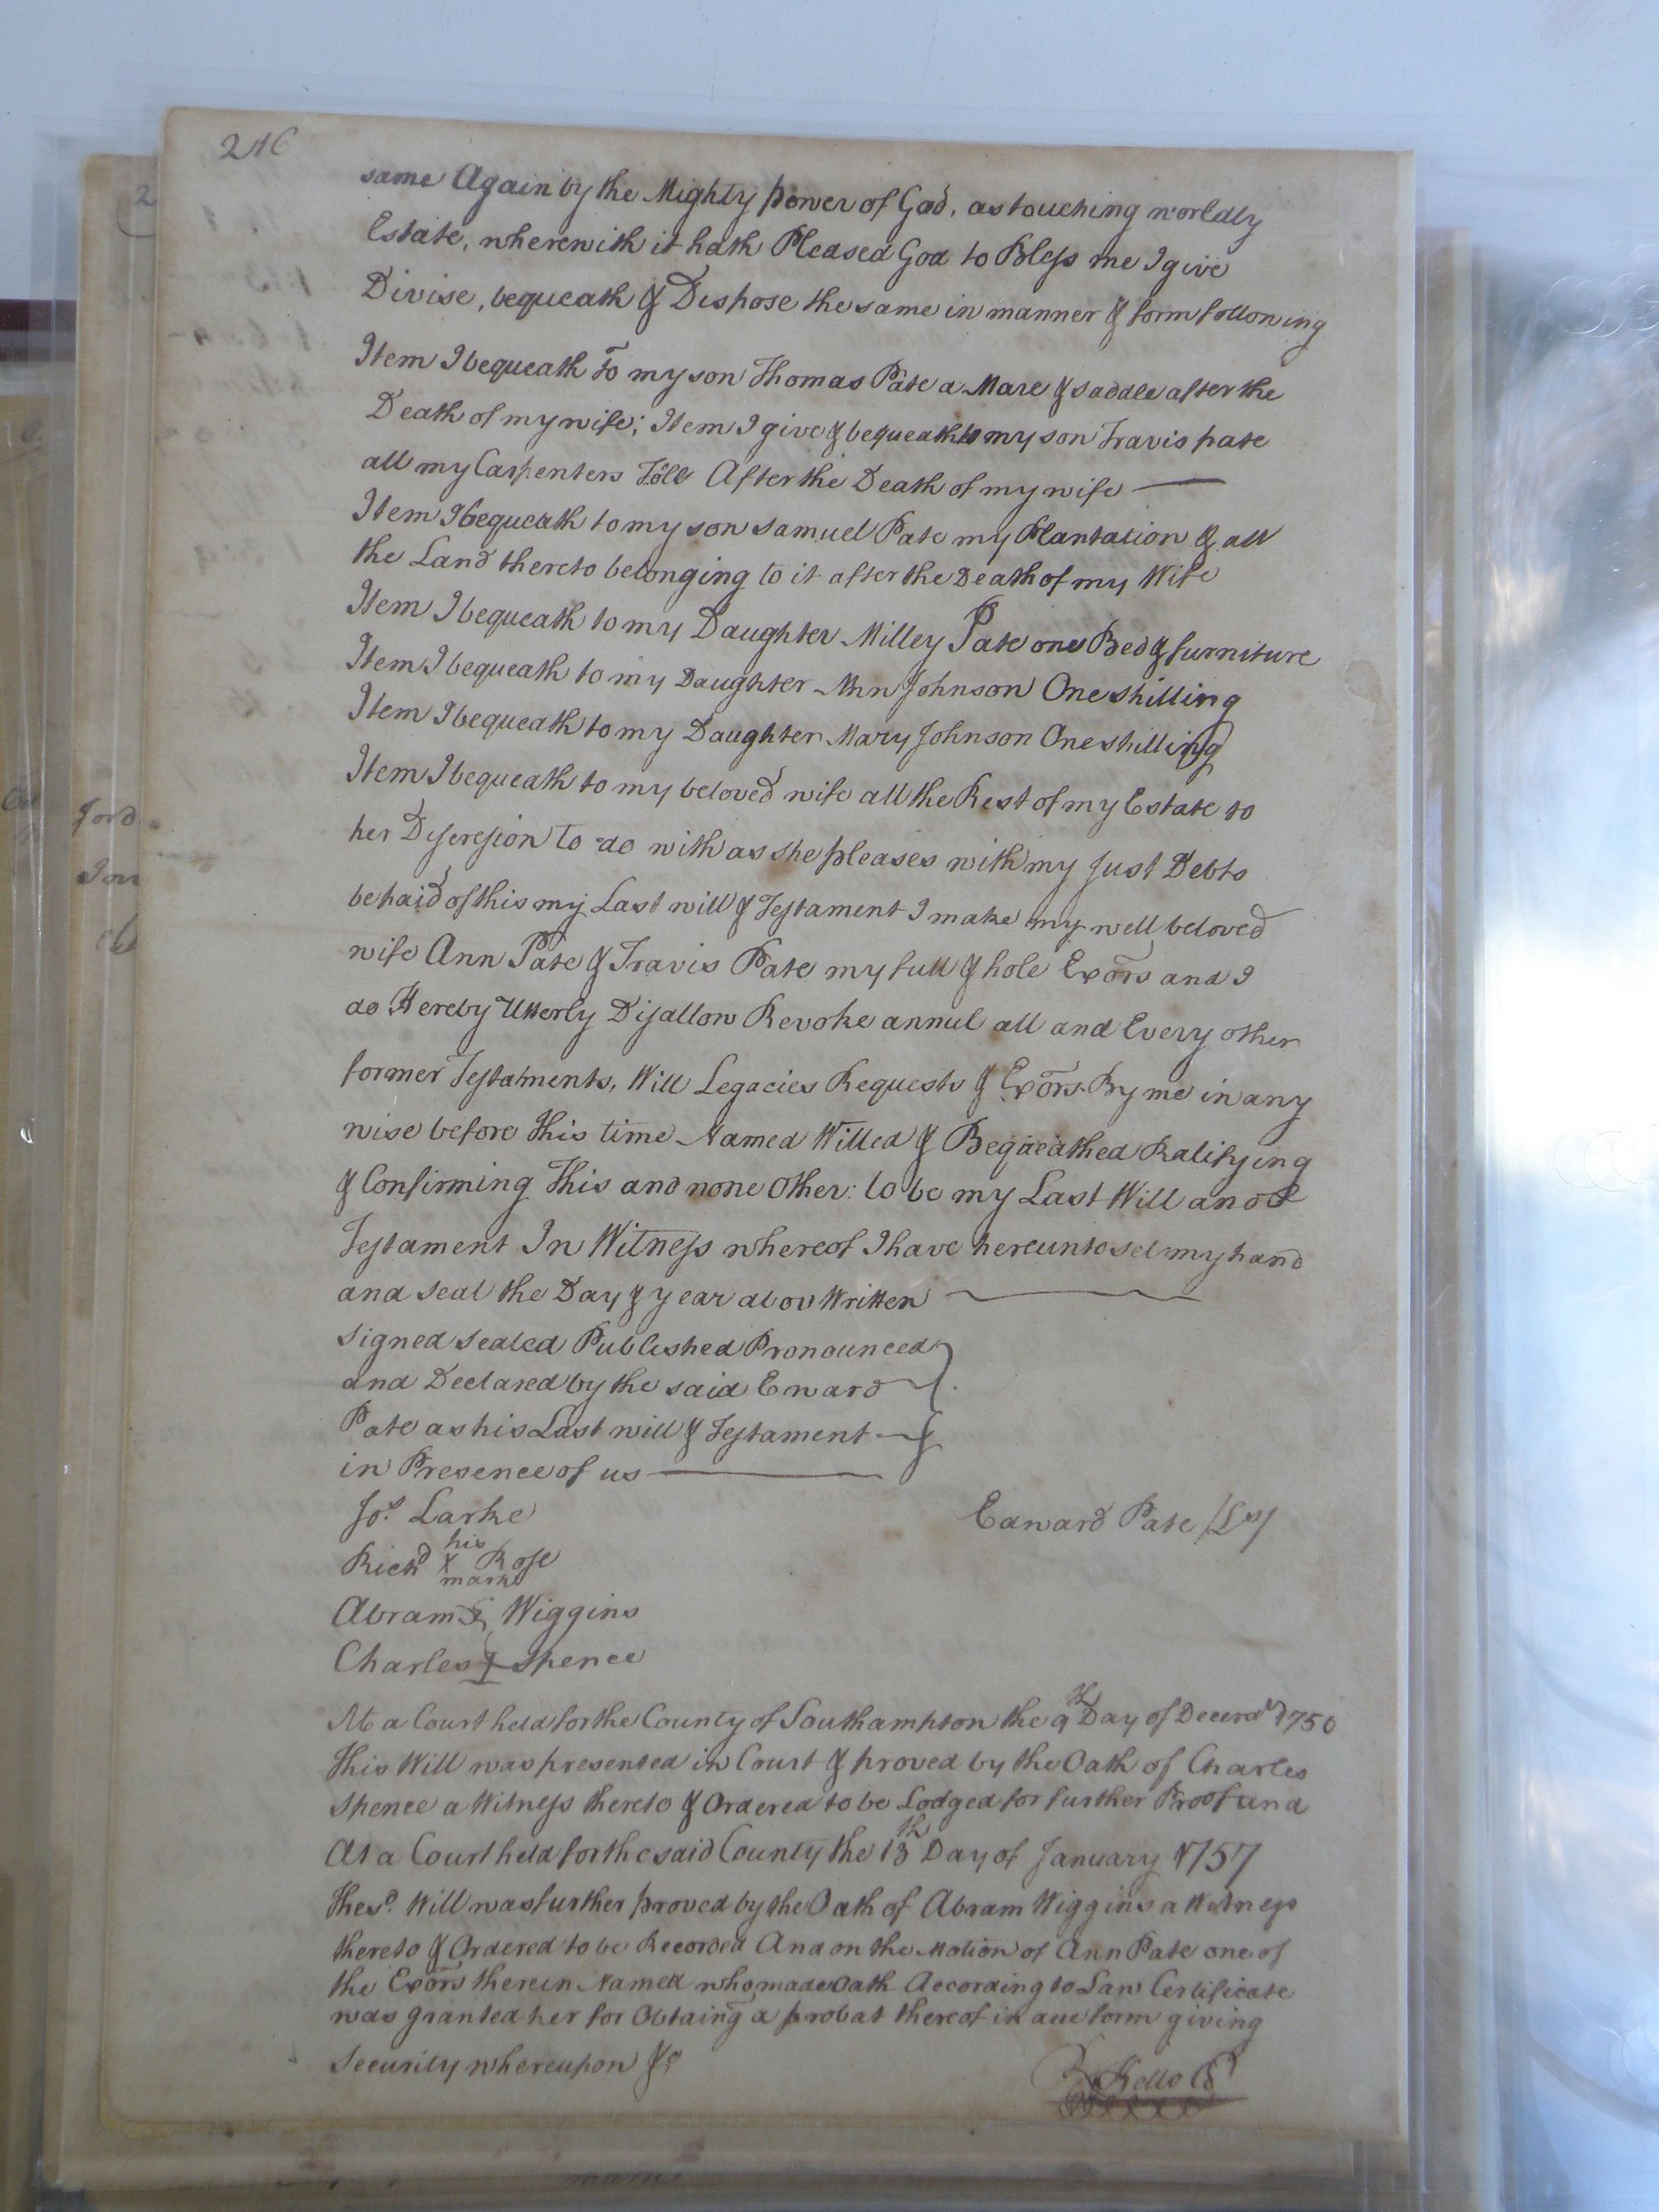 216
same Again by the Mighty power of God, as touching worldly
Estate, wherewith it hath Pleased God to Bless me I give
Divise, bequeath & Dispose the same in manner & form following
Item I bequeath to my son Thomas Pate a Mare & saddle after the
Death of my wife; Item I give & bequeath to my son Travis pate
all my Carpenters Tólls After the Death of my wife
Item I bequeath to my son Samuel Pate my Plantation & all
the Land thereto belonging to it after the Death of my Wife
Item I bequeath to my Daughter Milley Pate one Bed & furniture
Item I bequeath to my Daughter Ann Johnson One shilling
Item I bequeath to my Daughter Mary Johnson One shilling
Item I bequeath to my beloved wife all the Rest of my Estate to
her Discresion to do with as she pleases with my Just Debts
be paid of this my Last will & Testament I make my well beloved
wife Ann Pate & Travis Pate my full & hole Exors and I
do Hereby Utterly Disallow Revoke annul all and Every other
former Testatments, Will Legacies Requests & Exors. By me in any
wise before this time Named Willed & Bequeathed Ratifying
& Confirming This and none Other: to be my Last Will and
Testament In Witness whereof I have hereunto set my hand
and seal the Day & year abov Written
signed sealed Published Pronounced
and Declared by the said Edward
Pate as his Last will & Testament
in Presence of us
Jos. Larke
his
Richd X Rose
mark
Abram Wiggins
Charles Spence
Edward Pate (Ls)
At a Court held for the County of Southampton the 9th Day of Decemr 1756
This Will was presented in Court & proved by the Oath of Charles
Spence a Witness thereto & Ordered to be Lodged for further Proof and
At a Court held for the said County the 13th Day of January 1757
The sd. Will was further proved by the Oath of Abram Wiggins a Witness
thereto & Ordered to be Recorded And on the Motion of Ann Pate one of
the Exors therein Named who made Oath According to Law Certificate
was granted her for Obtaing a probat thereof in due form giving
Security whereupon &c
Kello